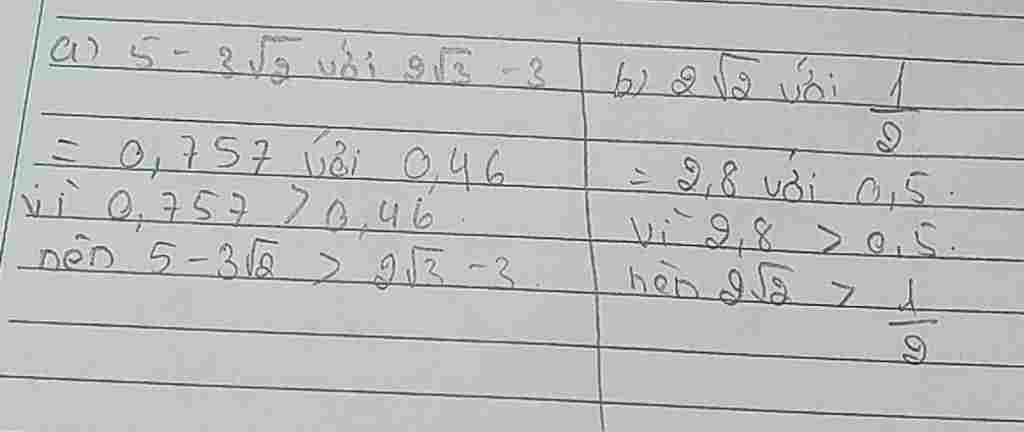 a) 5 - 3√2 với 2√3 - 3
= 0,757 với 0,46
vì 0,757 > 0,46.
nên 5 - 3√2 > 2√3 - 3.
b) 2√2 với 1/2
= 2,8 với 0,5.
vì 2,8 > 0,5.
nên 2√2 > 1/2